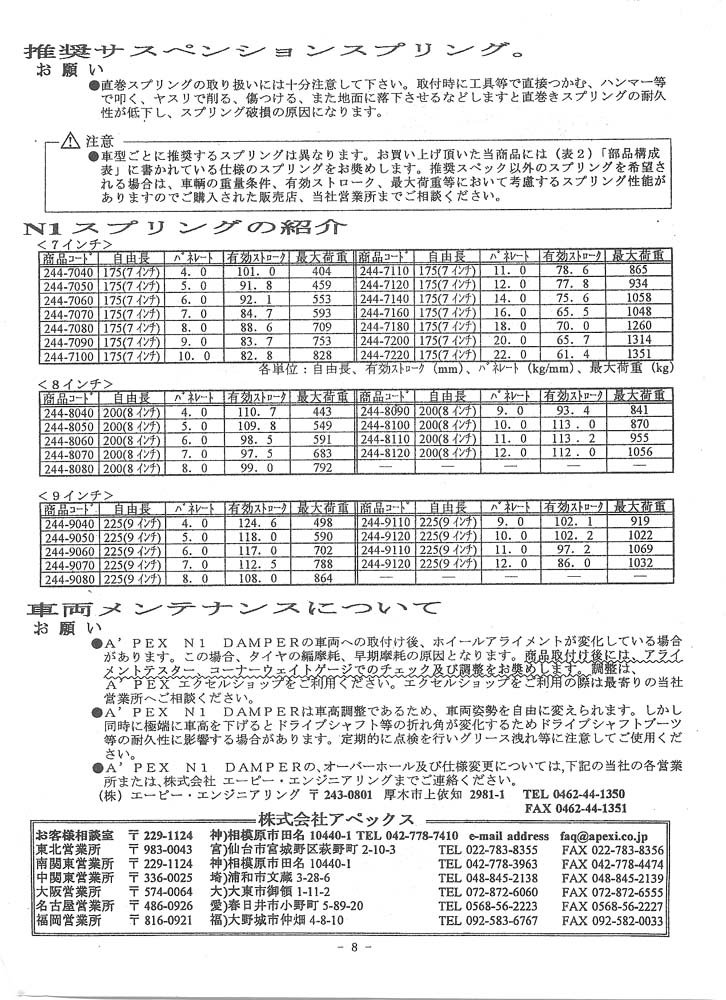 推奨サスペンションスプリング。
お 願 い
●直巻スプリングの取り扱いには十分注意して下さい。取付時に工具等で直接つかむ、ハンマー等
で叩く、ヤスリで削る、傷つける、また地面に落下させるなどしますと直巻きスプリングの耐久
性が低下し、スプリング破損の原因になります。
注意
●車型ごとに推奨するスプリングは異なります。お買い上げ頂いた当商品には（表２）「部品構成
表」に書かれている仕様のスプリングをお奨めします。推奨スペック以外のスプリングを希望さ
れる場合は、車輌の重量条件、有効ストローク、最大荷重等において考慮するスプリング性能が
ありますのでご購入された販売店、当社営業所までご相談ください。
N1スプリングの紹介
＜７インチ＞
商品ｺｰﾄﾞ 自由長 ﾊﾞﾈレート 有効ｽﾄﾛｰｸ 最大荷重 商品ｺｰﾄﾞ 自由長 ﾊﾞﾈレート 有効ｽﾄﾛｰｸ 最大荷重
244-7040 175(7 ｲﾝﾁ) 4. 0 101. 0 404 244-7110 175(7 ｲﾝﾁ) 11. 0 78. 6 865
244-7050 175(7 ｲﾝﾁ) 5. 0 91. 8 459 244-7120 175(7 ｲﾝﾁ) 12. 0 77. 8 934
244-7060 175(7 ｲﾝﾁ) 6. 0 92. 1 553 244-7140 175(7 ｲﾝﾁ) 14. 0 75. 6 1058
244-7070 175(7 ｲﾝﾁ) 7. 0 84. 7 593 244-7160 175(7 ｲﾝﾁ) 16. 0 65. 5 1048
244-7080 175(7 ｲﾝﾁ) 8. 0 88. 6 709 244-7180 175(7 ｲﾝﾁ) 18. 0 70. 0 1260
244-7090 175(7 ｲﾝﾁ) 9. 0 83. 7 753 244-7200 175(7 ｲﾝﾁ) 20. 0 65. 7 1314
244-7100 175(7 ｲﾝﾁ) 10. 0 82. 8 828 244-7220 175(7 ｲﾝﾁ) 22. 0 61. 4 1351
各単位：自由長、有効ｽﾄﾛｰｸ（mm）、ﾊﾞﾈレート（kg/mm）、最大荷重（kg）
＜８インチ＞
商品ｺｰﾄﾞ 自由長 ﾊﾞﾈレート 有効ｽﾄﾛｰｸ 最大荷重 商品ｺｰﾄﾞ 自由長 ﾊﾞﾈレート 有効ｽﾄﾛｰｸ 最大荷重
244-8040 200(8 ｲﾝﾁ) 4. 0 110. 7 443 244-8090 200(8 ｲﾝﾁ) 9. 0 93. 4 841
244-8050 200(8 ｲﾝﾁ) 5. 0 109. 8 549 244-8100 200(8 ｲﾝﾁ) 10. 0 113. 0 870
244-8060 200(8 ｲﾝﾁ) 6. 0 98. 5 591 244-8110 200(8 ｲﾝﾁ) 11. 0 113. 2 955
244-8070 200(8 ｲﾝﾁ) 7. 0 97. 5 683 244-8120 200(8 ｲﾝﾁ) 12. 0 112. 0 1056
244-8080 200(8 ｲﾝﾁ) 8. 0 99. 0 792 ― ― ― ― ―
＜９インチ＞
商品ｺｰﾄﾞ 自由長 ﾊﾞﾈレート 有効ｽﾄﾛｰｸ 最大荷重 商品ｺｰﾄﾞ 自由長 ﾊﾞﾈレート 有効ｽﾄﾛｰｸ 最大荷重
244-9040 225(9 ｲﾝﾁ) 4. 0 124. 6 498 244-9110 225(9 ｲﾝﾁ) 9. 0 102. 1 919
244-9050 225(9 ｲﾝﾁ) 5. 0 118. 0 590 244-9120 225(9 ｲﾝﾁ) 10. 0 102. 2 1022
244-9060 225(9 ｲﾝﾁ) 6. 0 117. 0 702 244-9110 225(9 ｲﾝﾁ) 11. 0 97. 2 1069
244-9070 225(9 ｲﾝﾁ) 7. 0 112. 5 788 244-9120 225(9 ｲﾝﾁ) 12. 0 86. 0 1032
244-9080 225(9 ｲﾝﾁ) 8. 0 108. 0 864 ― ― ― ― ―
車両メンテナンスについて
お 願 い
●A'PEX N1 DAMPERの車両への取付け後、ホイールアライメントが変化している場合
があります。この場合、タイヤの編摩耗、早期摩耗の原因となります。商品取付け後には、アライ
メントテスター コーナーウェイトゲージでのチェック及び調整をお奨めします。調整は、
A'PEX エクセルショップをご利用ください。エクセルショップをご利用の際は最寄りの当社
営業所へご相談ください。
●A'PEX N1 DAMPERは車高調整であるため、車両姿勢を自由に変えられます。しかし
同時に極端に車高を下げるとドライブシャフト等の折れ角が変化するためドライブシャフトブーツ
等の耐久性に影響する場合があります。定期的に点検を行いグリース洩れ等に注意してご使用くだ
さい。
●A'PEX N1 DAMPERの、オーバーホール及び仕様変更については,下記の当社の各営業
所または、株式会社 エーピー・エンジニアリングまでご連絡ください。
(株) エーピー・エンジニアリング 〒243-0801 厚木市上依知 2981-1 TEL 0462-44-1350
FAX 0462-44-1351
株式会社アペックス
お客様相談室 〒229-1124 神)相模原市田名 10440-1 TEL 042-778-7410 e-mail address faq@apexi.co.jp
東北営業所 〒983-0043 宮)仙台市宮城野区萩野町 2-10-3 TEL 022-783-8355 FAX 022-783-8356
南関東営業所 〒229-1124 神)相模原市田名 10440-1 TEL 042-778-3963 FAX 042-778-4474
中関東営業所 〒336-0025 埼)浦和市文蔵 3-28-6 TEL 048-845-2138 FAX 048-845-2139
大阪営業所 〒574-0064 大)大東市御領 1-11-2 TEL 072-872-6060 FAX 072-872-6555
名古屋営業所 〒486-0926 愛)春日井市小野町 5-89-20 TEL 0568-56-2223 FAX 0568-56-2227
福岡営業所 〒816-0921 福)大野城市仲畑 4-8-10 TEL 092-583-6767 FAX 092-582-0033
- 8 -